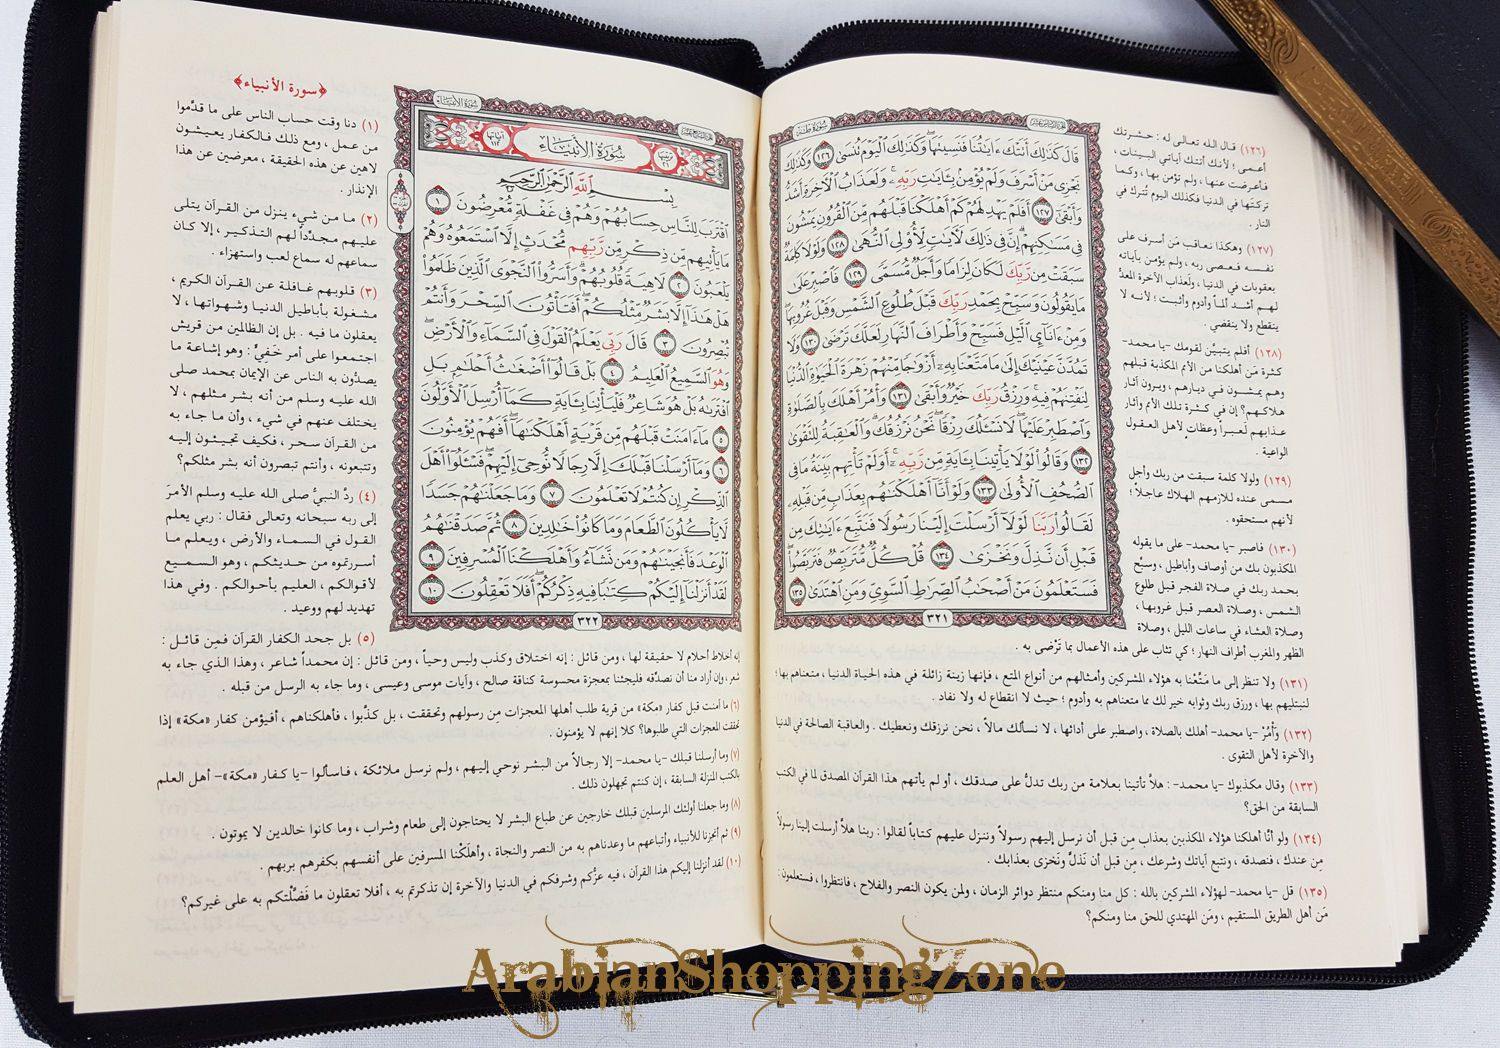 سُورَةُ طه
قَالَ كَذَٰلِكَ أَتَتْكَ ءَايَٰتُنَا فَنَسِيتَهَا وَكَذَٰلِكَ ٱلْيَوْمَ تُنسَىٰ ١٢٦ وَكَذَٰلِكَ
نَجْزِى مَنْ أَسْرَفَ وَلَمْ يُؤْمِنۢ بِـَٔايَٰتِ رَبِّهِۦ وَلَعَذَابُ ٱلْءَاخِرَةِ أَشَدُّ
وَأَبْقَىٰٓ ١٢٧ أَفَلَمْ يَهْدِ لَهُمْ كَمْ أَهْلَكْنَا قَبْلَهُم مِّنَ ٱلْقُرُونِ يَمْشُونَ
فِى مَسَٰكِنِهِمْ إِنَّ فِى ذَٰلِكَ لَءَايَٰتٍ لِّأُو۟لِى ٱلنُّهَىٰ ١٢٨ وَلَوْلَا كَلِمَةٌ
سَبَقَتْ مِن رَّبِّكَ لَكَانَ لِزَامًا وَأَجَلٌ مُّسَمًّى ١٢٩ فَٱصْبِرْ عَلَىٰ
مَا يَقُولُونَ وَسَبِّحْ بِحَمْدِ رَبِّكَ قَبْلَ طُلُوعِ ٱلشَّمْسِ وَقَبْلَ غُرُوبِهَا
وَمِنْ ءَانَآئِ ٱلَّيْلِ فَسَبِّحْ وَأَطْرَافَ ٱلنَّهَارِ لَعَلَّكَ تَرْضَىٰ ١٣٠ وَلَا
تَمُدَّنَّ عَيْنَيْكَ إِلَىٰ مَا مَتَّعْنَا بِهِۦٓ أَزْوَٰجًا مِّنْهُمْ زَهْرَةَ ٱلْحَيَوٰةِ ٱلدُّنْيَا
لِنَفْتِنَهُمْ فِيهِ وَرِزْقُ رَبِّكَ خَيْرٌ وَأَبْقَىٰ ١٣١ وَأْمُرْ أَهْلَكَ بِٱلصَّلَوٰةِ
وَٱصْطَبِرْ عَلَيْهَا لَا نَسْـَٔلُكَ رِزْقًا نَّحْنُ نَرْزُقُكَ وَٱلْعَٰقِبَةُ لِلتَّقْوَىٰ
١٣٢ وَقَالُوا۟ لَوْلَا يَأْتِينَا بِـَٔايَةٍ مِّن رَّبِّهِۦٓ أَوَلَمْ تَأْتِهِم بَيِّنَةُ مَا فِى
ٱلصُّحُفِ ٱلْأُولَىٰ ١٣٣ وَلَوْ أَنَّآ أَهْلَكْنَٰهُم بِعَذَابٍ مِّن قَبْلِهِۦ
لَقَالُوا۟ رَبَّنَا لَوْلَآ أَرْسَلْتَ إِلَيْنَا رَسُولًا فَنَتَّبِعَ ءَايَٰتِكَ مِن
قَبْلِ أَن نَّذِلَّ وَنَخْزَىٰ ١٣٤ قُلْ كُلٌّ مُّتَرَبِّصٌ فَتَرَبَّصُوا۟
فَسَتَعْلَمُونَ مَنْ أَصْحَٰبُ ٱلصِّرَٰطِ ٱلسَّوِىِّ وَمَنِ ٱهْتَدَىٰ ١٣٥
٣٢١
(١٢٦) قال الله تعالى له : حشرتك
أعمى ؛ لأنك أتتك آياتي البينات ،
فأعرضت عنها ، ولم تؤمن بها ، وكما
تركتها في الدنيا فكذلك اليوم تُترك في
النار .
(١٢٧) وهكذا نعاقب مَن أسرف على
نفسه فعصى ربه ، ولم يؤمن بآياته
بعقوبات في الدنيا ، ولعذاب الآخرة المعدُّ
لهم أشد ألماً وأدوم وأثبت ؛ لأنه لا
ينقطع ولا ينقضي .
(١٢٨) أفلم يتبيَّن لقومك -يا محمد-
كثرة مَن أهلكنا من الأمم المكذبة قبلهم
وهم يمشون في ديارهم ، ويرون آثار
هلاكهم؟ إن في كثرة تلك الأمم وآثار
عذابهم لَعبراً وعظاتٍ لأهل العقول
الواعية .
(١٢٩) ولولا كلمة سبقت من ربك وأجل
مسمى عنده للازمهم الهلاك عاجلاً ؛
لأنهم مستحقوه .
(١٣٠) فاصبر -يا محمد- على ما يقوله
المكذبون بك من أوصاف وأباطيل ، وسبّح
بحمد ربك في صلاة الفجر قبل طلوع
الشمس ، وصلاة العصر قبل غروبها ،
وصلاة العشاء في ساعات الليل ، وصلاة
الظهر والمغرب أطراف النهار ؛ كي تثاب على هذه الأعمال بما تَرْضى به .
(١٣١) ولا تنظر إلى ما مَتَّعْنا به هؤلاء المشركين وأمثالهم من أنواع المتع ، فإنها زينة زائلة في هذه الحياة الدنيا ، متعناهم بها ؛
لنبتليهم بها ، ورزق ربك وثوابه خير لك مما متعناهم به وأدوم ؛ حيث لا انقطاع له ولا نفاد .
(١٣٢) وَأْمُرْ -يا محمد- أهلك بالصلاة ، واصطبر على أدائها ، لا نسألك مالاً ، نحن نرزقك ونعطيك . والعاقبة الصالحة في الدنيا
والآخرة لأهل التقوى .
(١٣٣) وقال مكذبوك -يا محمد- : هلاَّ تأتينا بعلامة من ربك تدلُّ على صدقك ، أو لم يأتهم هذا القرآن المصدق لما في الكتب
السابقة من الحق؟
(١٣٤) ولو أنَّا أهلكنا هؤلاء المكذبين بعذاب مِن قبل أن نرسل إليهم رسولاً وننزل عليهم كتاباً لقالوا : ربنا هلاَّ أرسلت إلينا رسولاً
مِن عندك ، فنصدقه ، ونتبع آياتك وشرعك ، مِن قبل أن نَذلَّ ونَخزى بعذابك .
(١٣٥) قل -يا محمد- لهؤلاء المشركين بالله : كل منا ومنكم منتظر دوائر الزمان ، ولمن يكون النصر والفلاح ، فانتظروا ، فستعلمون :
مَن أهل الطريق المستقيم ، ومَن المهتدي للحق منا ومنكم؟
سُورَةُ الأَنبِيَاءِ
سُورَةُ الأَنبِيَاءِ
آيَاتُهَا ١١٢
بِسْمِ ٱللَّهِ ٱلرَّحْمَٰنِ ٱلرَّحِيمِ
ٱقْتَرَبَ لِلنَّاسِ حِسَابُهُمْ وَهُمْ فِى غَفْلَةٍ مُّعْرِضُونَ ١
مَا يَأْتِيهِم مِّن ذِكْرٍ مِّن رَّبِّهِم مُّحْدَثٍ إِلَّا ٱسْتَمَعُوهُ وَهُمْ
يَلْعَبُونَ ٢ لَاهِيَةً قُلُوبُهُمْ وَأَسَرُّوا۟ ٱلنَّجْوَى ٱلَّذِينَ ظَلَمُوا۟
هَلْ هَٰذَآ إِلَّا بَشَرٌ مِّثْلُكُمْ أَفَتَأْتُونَ ٱلسِّحْرَ وَأَنتُمْ
تُبْصِرُونَ ٣ قَالَ رَبِّى يَعْلَمُ ٱلْقَوْلَ فِى ٱلسَّمَآءِ وَٱلْأَرْضِ
وَهُوَ ٱلسَّمِيعُ ٱلْعَلِيمُ ٤ بَلْ قَالُوٓا۟ أَضْغَٰثُ أَحْلَٰمٍۭ بَلِ
ٱفْتَرَىٰهُ بَلْ هُوَ شَاعِرٌ فَلْيَأْتِنَا بِـَٔايَةٍ كَمَآ أُرْسِلَ ٱلْأَوَّلُونَ
٥ مَآ ءَامَنَتْ قَبْلَهُم مِّن قَرْيَةٍ أَهْلَكْنَٰهَآ أَفَهُمْ يُؤْمِنُونَ
٦ وَمَآ أَرْسَلْنَا قَبْلَكَ إِلَّا رِجَالًا نُّوحِىٓ إِلَيْهِمْ فَسْـَٔلُوٓا۟ أَهْلَ
ٱلذِّكْرِ إِن كُنتُمْ لَا تَعْلَمُونَ ٧ وَمَا جَعَلْنَٰهُمْ جَسَدًا
لَّا يَأْكُلُونَ ٱلطَّعَامَ وَمَا كَانُوا۟ خَٰلِدِينَ ٨ ثُمَّ صَدَقْنَٰهُمُ
ٱلْوَعْدَ فَأَنجَيْنَٰهُمْ وَمَن نَّشَآءُ وَأَهْلَكْنَا ٱلْمُسْرِفِينَ ٩
لَقَدْ أَنزَلْنَآ إِلَيْكُمْ كِتَٰبًا فِيهِ ذِكْرُكُمْ أَفَلَا تَعْقِلُونَ ١٠
٣٢٢
﴿سورة الأنبياء﴾
(١) دنا وقت حساب الناس على ما قدَّموا
من عمل ، ومع ذلك فالكفار يعيشون
لاهين عن هذه الحقيقة ، معرضين عن هذا
الإنذار .
(٢) ما من شيء ينزل من القرآن يتلى
عليهم مجدِّداً لهم التذكير ، إلا كان
سماعهم له سماع لعب واستهزاء .
(٣) قلوبهم غافلة عن القرآن الكريم ،
مشغولة بأباطيل الدنيا وشهواتها ، لا
يعقلون ما فيه . بل إن الظالمين من قريش
اجتمعوا على أمر خَفيٍّ : وهو إشاعة ما
يصدُّون به الناس عن الإيمان بمحمد صلى
الله عليه وسلم من أنه بشر مثلهم ، لا
يختلف عنهم في شيء ، وأن ما جاء به
من القرآن سحر ، فكيف تجيئون إليه
وتتبعونه ، وأنتم تبصرون أنه بشر مثلكم؟
(٤) ردَّ النبيُّ صلى الله عليه وسلم الأمرَ
إلى ربه سبحانه وتعالى فقال : ربي يعلم
القول في السماء والأرض ، ويعلم ما
أسررتموه من حديثكم ، وهو السميع
لأقوالكم ، العليم بأحوالكم . وفي هذا
تهديد لهم ووعيد .
(٥) بل جحد الكفار القرآن فمِن قائل :
إنه أخلاط أحلام لا حقيقة لها ، ومن قائل : إنه اختلاق وكذب وليس وحياً ، ومن قائل : إن محمداً شاعر ، وهذا الذي جاء به
شعر ، وإن أراد منا أن نصدِّقه فليجئنا بمعجزة محسوسة كناقة صالح ، وآيات موسى وعيسى ، وما جاء به الرسل من قبله .
(٦) ما آمنت قبل كفار «مكة» من قرية طلب أهلها المعجزات مِن رسولهم وتحققت ، بل كذَّبوا ، فأهلكناهم ، أفيؤمن كفار «مكة» إذا
تحققت المعجزات التي طلبوها؟ كلا إنهم لا يؤمنون .
(٧) وما أرسلنا قبلك -يا محمد- إلا رجالاً من البشر نوحي إليهم ، ولم نرسل ملائكة ، فاسألوا -يا كفار «مكة»- أهل العلم
بالكتب المنزلة السابقة ، إن كنتم تجهلون ذلك .
(٨) وما جعلنا أولئك المرسلين قبلك خارجين عن طباع البشر لا يحتاجون إلى طعام وشراب ، وما كانوا خالدين لا يموتون .
(٩) ثم أنجزنا للأنبياء وأتباعهم ما وعدناهم به من النصر والنجاة ، وأهلَكْنا المسرفين على أنفسهم بكفرهم بربهم .
(١٠) لقد أنزلنا إليكم هذا القرآن ، فيه عزُّكم وشرفكم في الدنيا والآخرة إن تذكرتم به ، أفلا تعقلون ما فَضَّلْتكم به على غيركم؟
ArabianShoppingZone